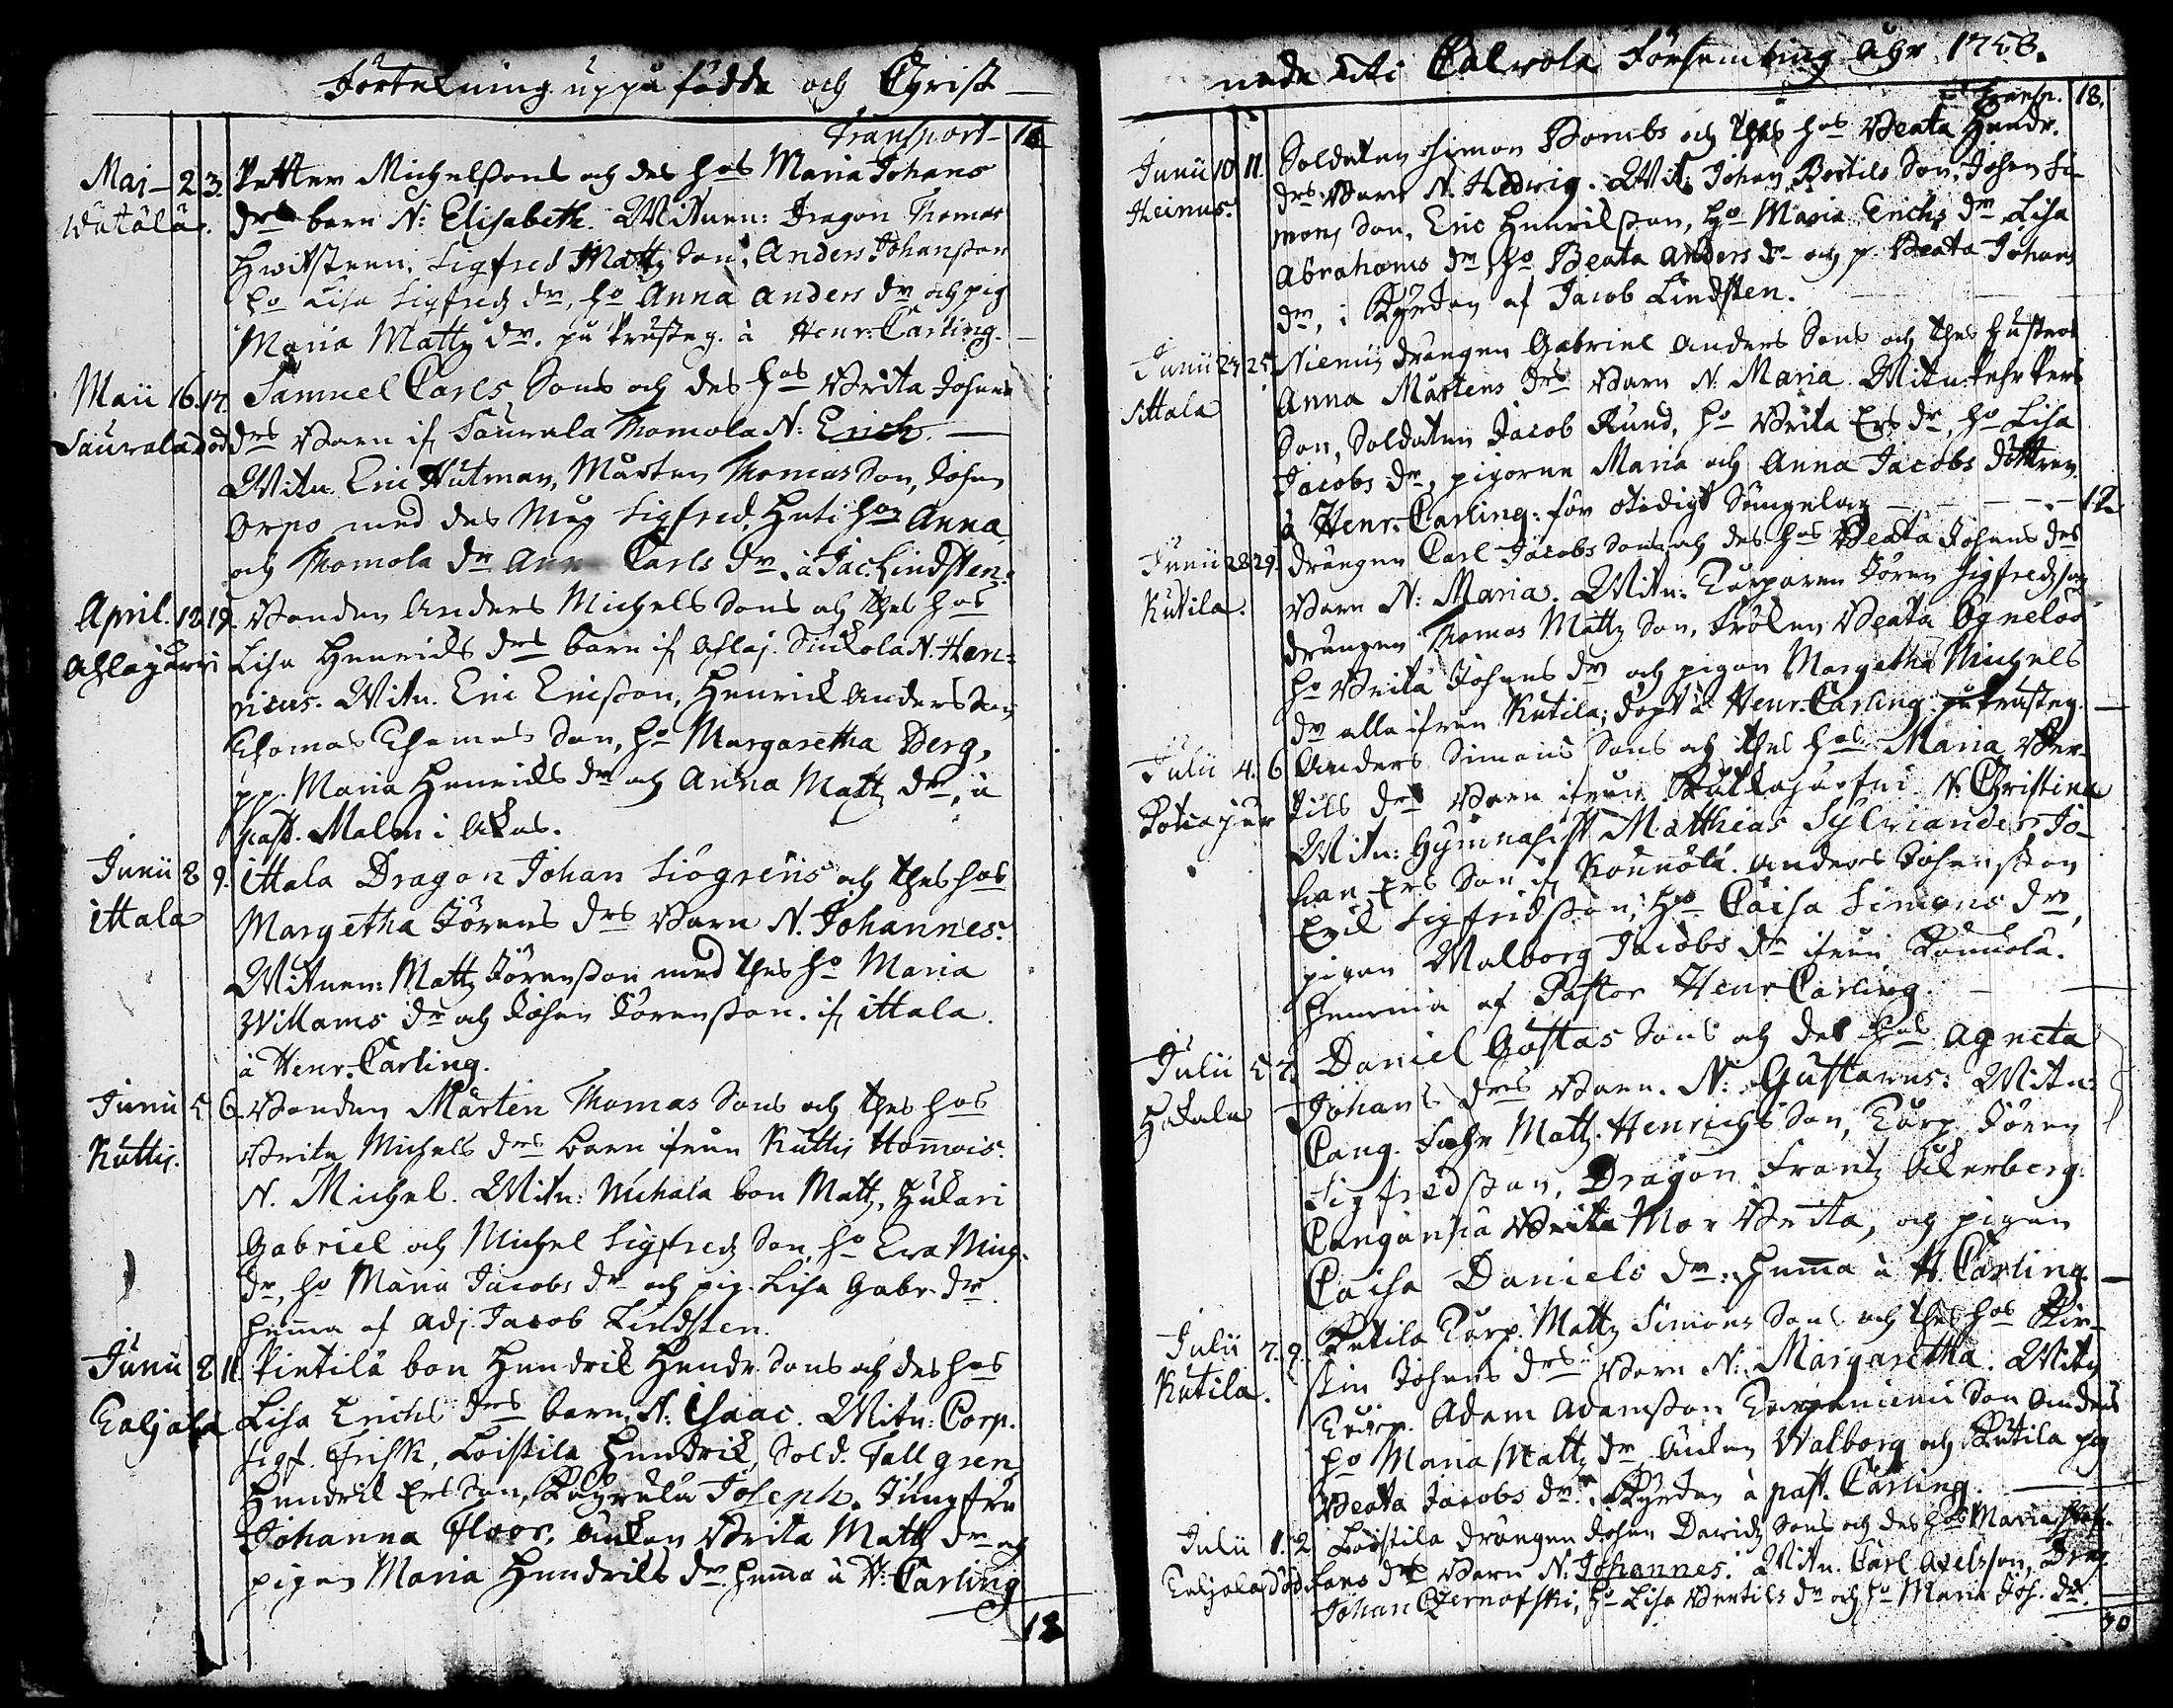 Förtekning uppå födde och Christ-
Transport - 16
Maj - 2 3. Petter Michelssons och des hos Maria Johans
Watala. drs barn N: Elisabeth. Witnen: Dragon Thomas
Hwitsteen, Sigfred Matts Son, Anders Johansson
ho Lisa Sigfreds dr, ho Anna Anders dr och pig
Maria Matts dr. på Prusteg. à Henr: Carling.
Maii 16. 17. Samuel Carls Sons och des hos Brita Johans
Saurala död drs Barn if Saurala Thomola N: Erich.
Witn. Eric Hutman, Mårten Thomas Son, Johan
Orpo med des Måg Sigfred, hos Anna
och Thomola dr Ann Carls dr, à Jac: Lindsten.
April. 18 19. Bonden Anders Michels Sons och thes hos
Lisa Henrichs drs barn if N. Hen-
ricus. Witn. Eric Ericsson, Henrick Anders Son
Thomas Thomas Son, ho Margaretha Berg,
pp. Maria Henrichs dr och Anna Matts dr, à
past. Malm i Akas.
Junii 8 9. ittala Dragon Johan Siögrens och thes hos
ittala Margetha Jörens drs Barn N. Johannes.
Witnen: Matts Jörensson med thes ho Maria
Willams dr och Johan Jörensson. if ittala.
à Henr. Carling.
Junii 5 6 Bonden Mårten Thomas Sons och thes hos
Kuttis. Brita Michels drs barn ifrån Kuttis
N. Michel. Witn: bon Matts,
Gabriel och Michel Sigfreds Son, ho Eva Mich.
dr, ho Maria Jacobs dr och pig. Lisa Gabr. dr.
hema af Adj. Jacob Lindsten.
Junii 8 11. Pietilä bon Hendrik Hendr. Sons och des hos
Taljala Lisa Erichs drs barn N: Isaac. Witn: Corp.
Sigf. Frisk, Loistila Hendrik, Sold. Tallgren,
Hendrik Ers Son, Joseph. Jungfru
Johanna Floor, Änkan Brita Matts dr och
pigan Maria Hendriks dr. hema à H: Carling
18
nade uti Calvola Församling åhr 1758.
Transp. 18.
Junii 10 11. Soldaten Simon Bombs och thes hos Beata Hendr.
Heinus. drs Barn N. Hedwig. Witn: Johan Bertils Son, Johan Si-
mons Son, Eric Henriksson, ho Maria Erichs dr, Lisa
Abrahams dr, ho Beata Anders dr och p. Beata Johans
dr, i Kyrkan af Jacob Lindsten.
Junii 24 25. Niemis drängen Gabriel Anders Sons och thes hustros
ittala Anna Mårtens drs Barn N: Maria. Witn: Pehr Pers
Son, Soldaten Jacob Rund, ho Brita Ers dr, ho Lisa
Jacobs dr, pigorna Maria och Anna Jacobs döttrar
à Henr. Carling: för otidigt Sängelag - 12
Junii 28 29. drängen Carl Jacobs Sons och des hos Beata Johans drs
Kutila. Barn N: Maria. Witn: Torparen Jören Sigfredsson
drängen Thomas Matts Son, Fröken Beata Ogneloo
ho Brita Johans dr och pigan Margetha Michels
dr alla ifrån Kutila; döpt à Henr. Carling: på Prusteg.
Julii 4. 6 Anders Simons Sons och thes hos Maria Ber-
tils drs Barn ifrån N. Christina
Witn: Gymnasist Matthias Sylvander, Jo-
han Ers Son if Kounola. Anders Johansson
Erik Sigfridsson, ho Caisa Simons dr,
pigan Walborg Jacobs dr ifrån Kounola.
hemma af Pastor Henr Carling.
Julii 5 7. Daniel Göstas Sons och des hos Agneta
Johans drs Barn. N: Gustavus: Witn:
Matts Henrichs Son, Torp. Jören
Sigfredsson, Dragon Frantz Åkerberg:
Brita Mor Brita, och pigan
Caisa Daniels dr: hema à H Carling.
Julii 7. 9. Kutila Torp. Matts Simons Sons och thes hos Kir-
Kutila. stin Johans drs Barn N: Margaretha. Witn
Torp. Adam Adamsson Son Anders
ho Maria Matts dr Änkan Walborg och Kutila pig
Beata Jacobs dr. Kyrkan à past. Carling.
Julii 1. 2 Loistila drängen Johan Davids Sons och des hos Maria Stef-
Taljala död fans drs Barn N: Johannes. Witn. Carl Axelsson, Drag
Johan Czernafski, ho Lisa Bertils dr och ho Maria Joh. dr.
30